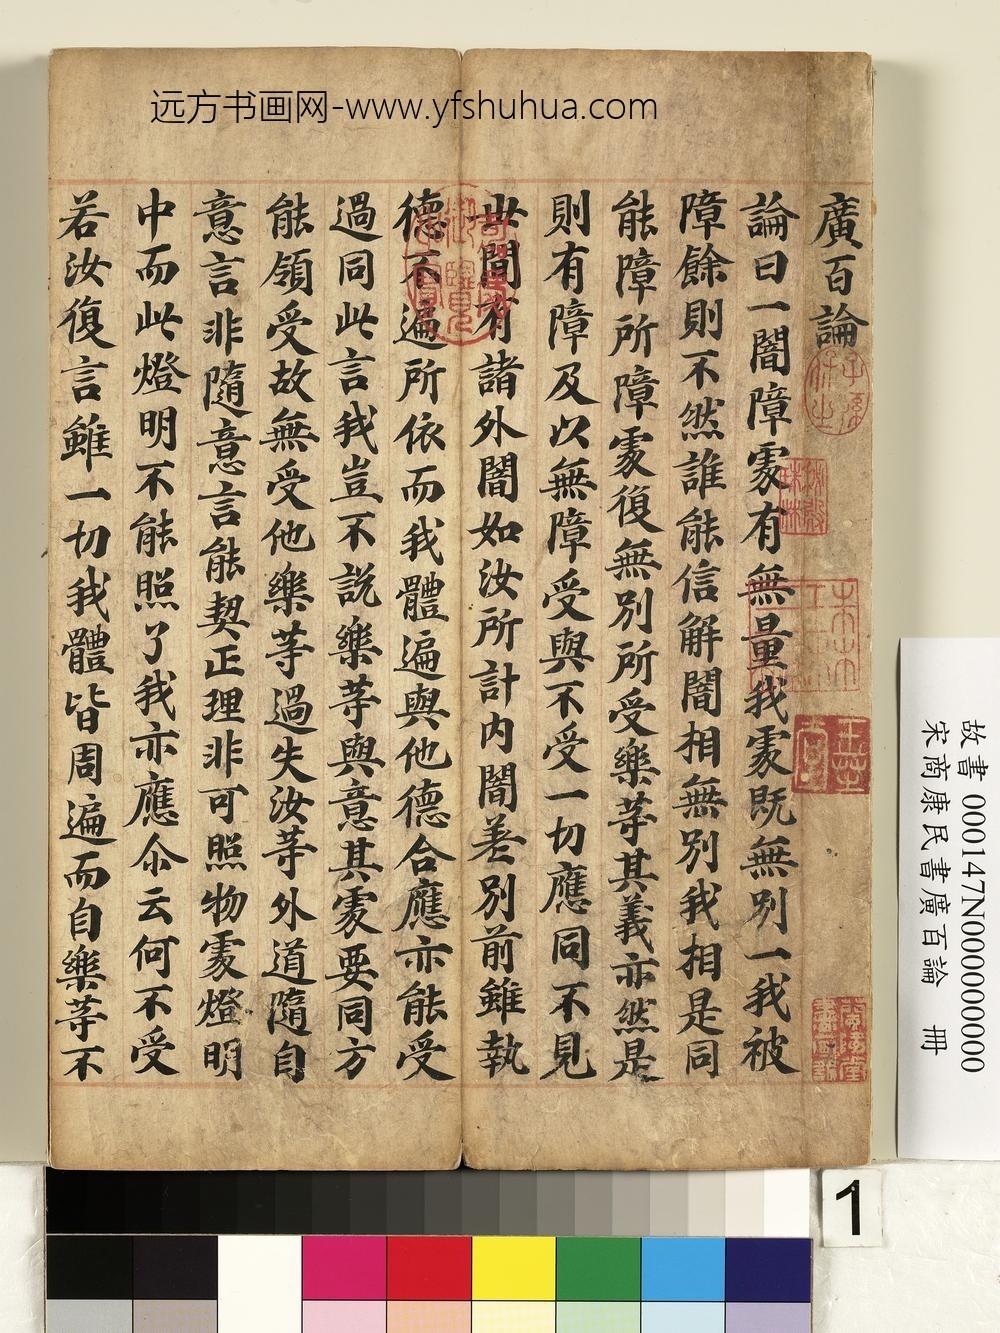 远方书画网-www.yfshuhua.com
廣百論
論曰一闇障處有無量我處既無別一我被
障餘則不然誰能信解闇相無別我相是同
能障所障處復無別所受樂等其義亦然是
則有障及以無障受與不受一切應同不見
世間有諸外闇如汝所計內闇差別前雖執
德不遍所依而我體遍與他德合應亦能受
過同此言我豈不説樂等與意其處要同方
能領受故無受他樂等過失汝等外道隨自
意言非隨意言能契正理非可照物處燈明
中而此燈明不能照了我亦應尒云何不受
若汝復言雖一切我體皆周遍而自樂等不
故書 000147N000000000
宋商康民書廣百論 冊
1